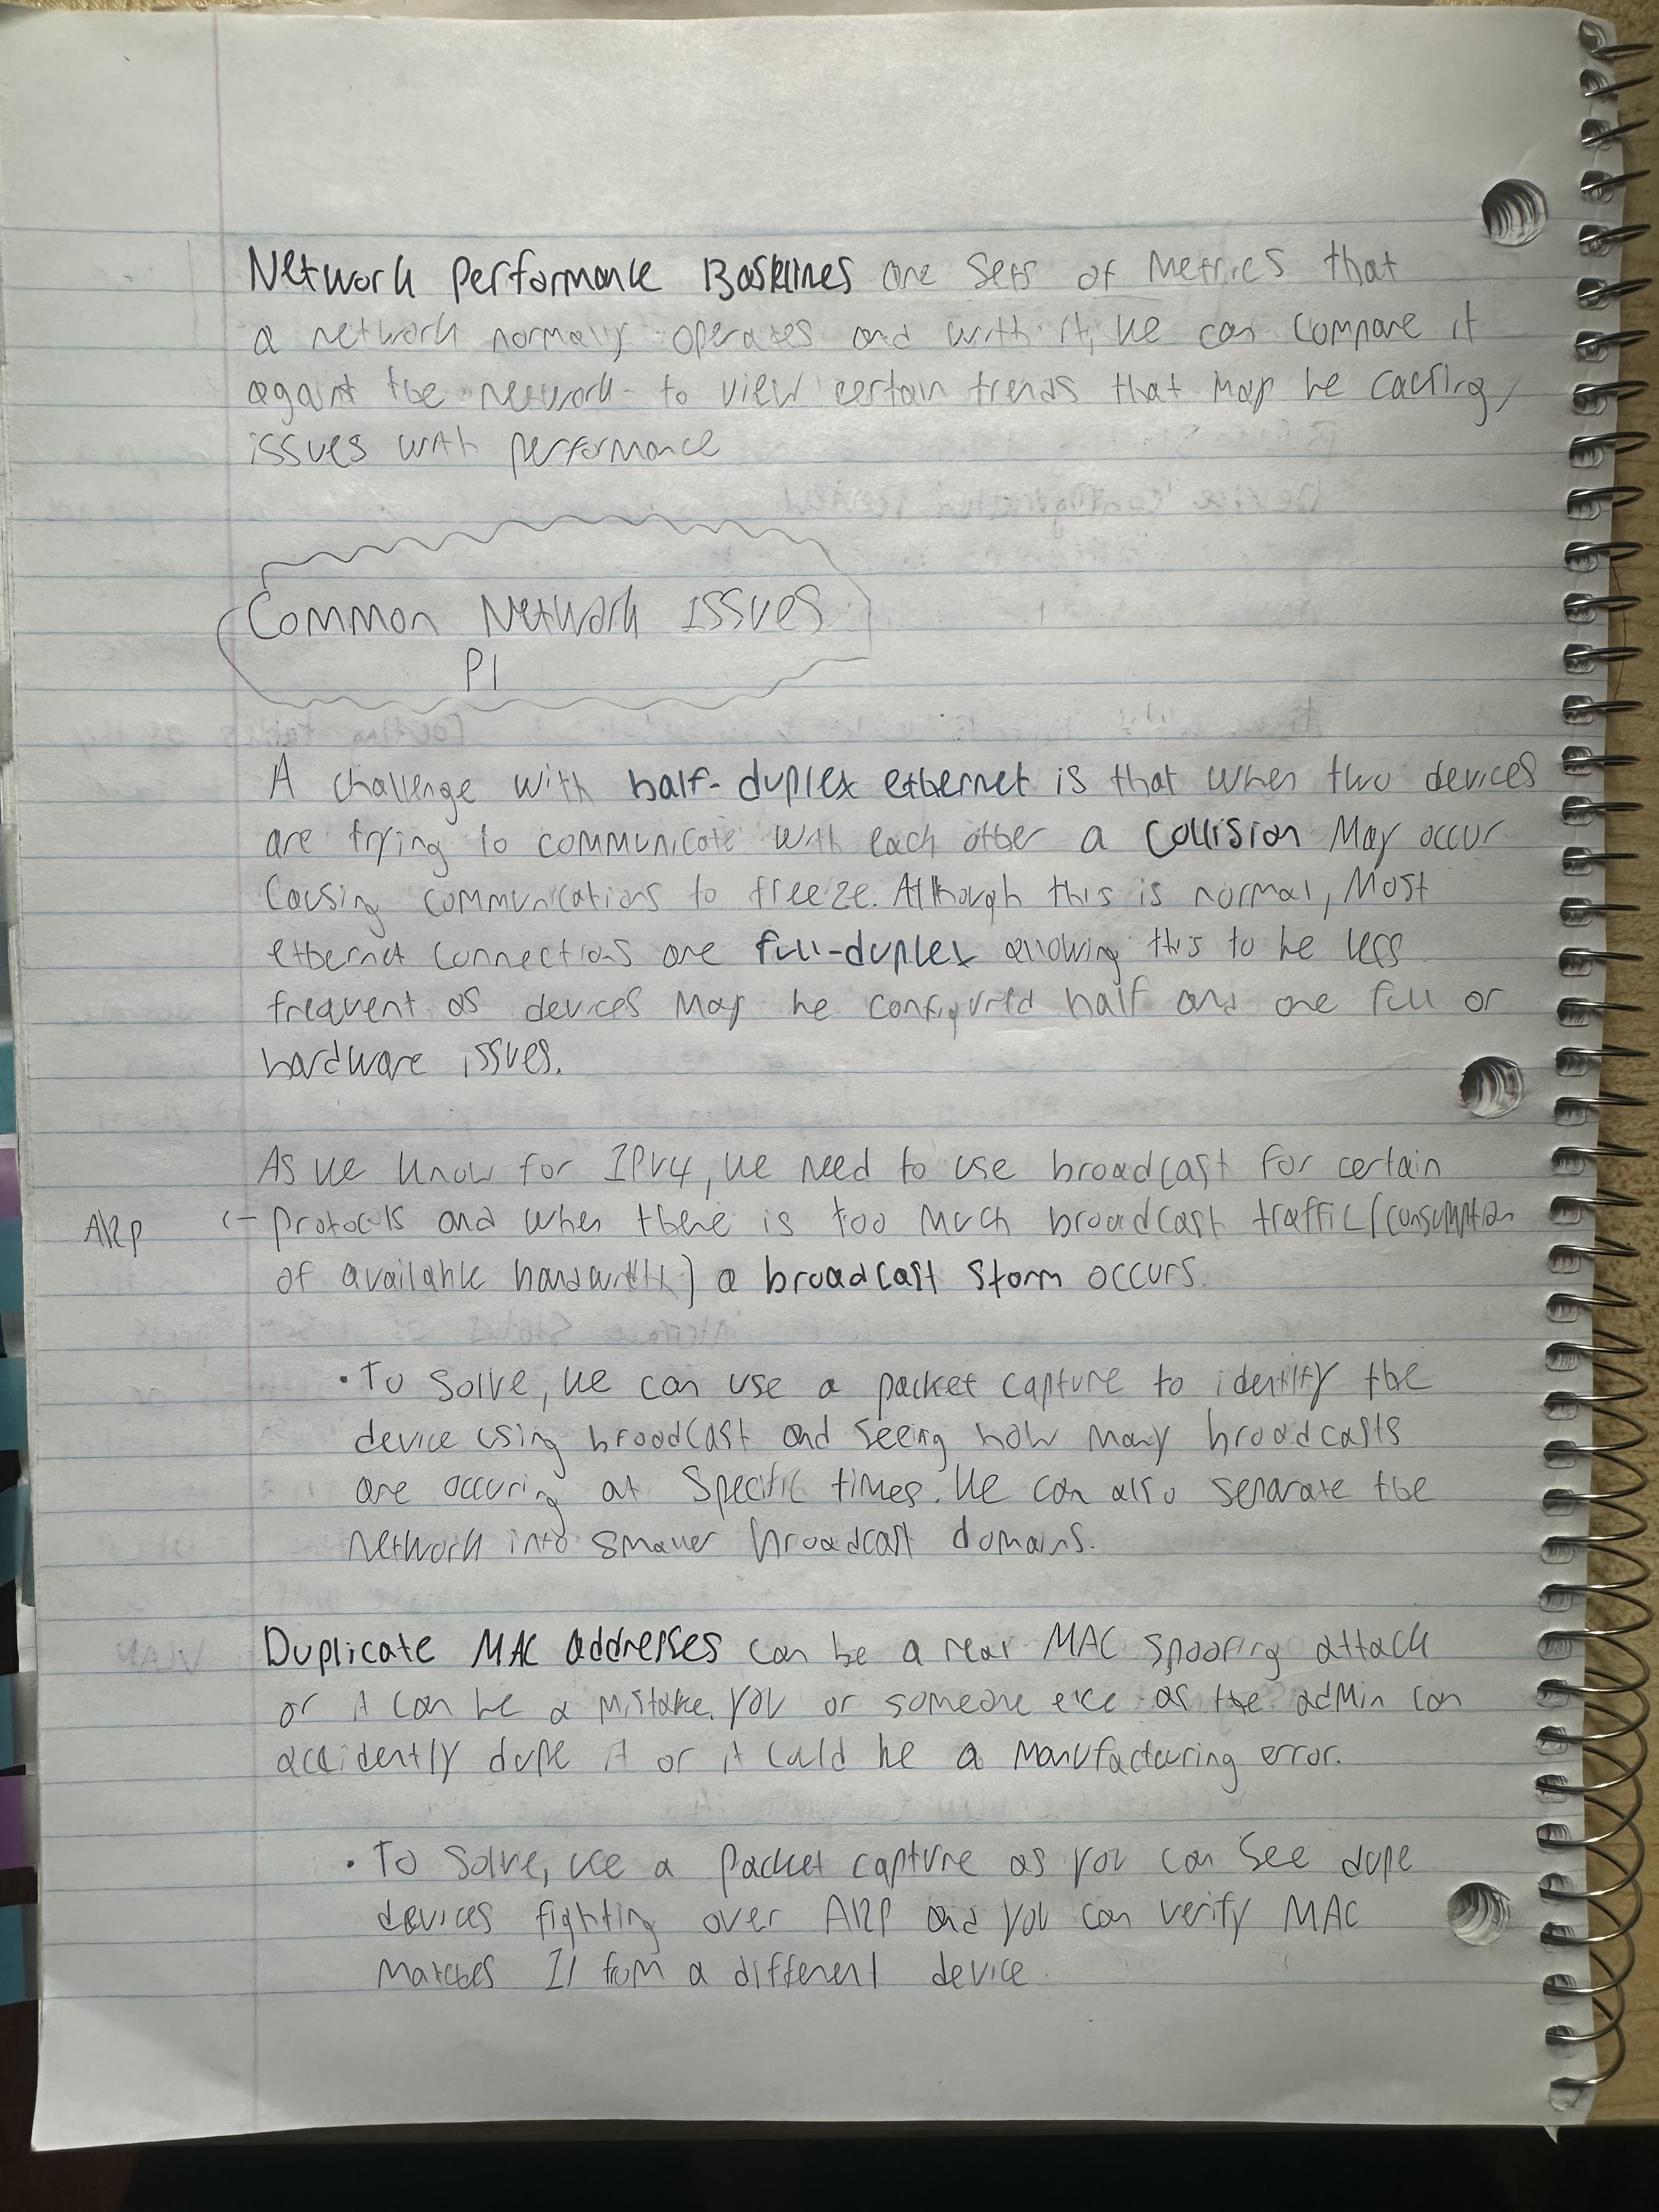 Network Performance Baselines are sets of metrics that
a network normally operates and with it, we can compare it
against the network to view certain trends that may be causing
issues with performance
Common Network Issues
P1
A challenge with half-duplex ethernet is that when two devices
are trying to communicate with each other a collision may occur
causing communications to freeze. Although this is normal, most
ethernet connections are full-duplex allowing this to be less
frequent as devices may be configured half and one full or
hardware issues.
As we know for IPv4, we need to use broadcast for certain
ARP <- protocols and when there is too much broadcast traffic (consumption
of available bandwidth) a broadcast storm occurs.
• To solve, we can use a packet capture to identify the
device using broadcast and seeing how many broadcasts
are occuring at specific times. We can also separate the
network into smaller broadcast domains.
Duplicate MAC addresses can be a MAC spoofing attack
or it can be a mistake. you or someone else as the admin can
accidently dupe it or it could be a manufacturing error.
• To solve, use a packet capture as you can see dupe
devices fighting over ARP and you can verify MAC
matches IP from a different device